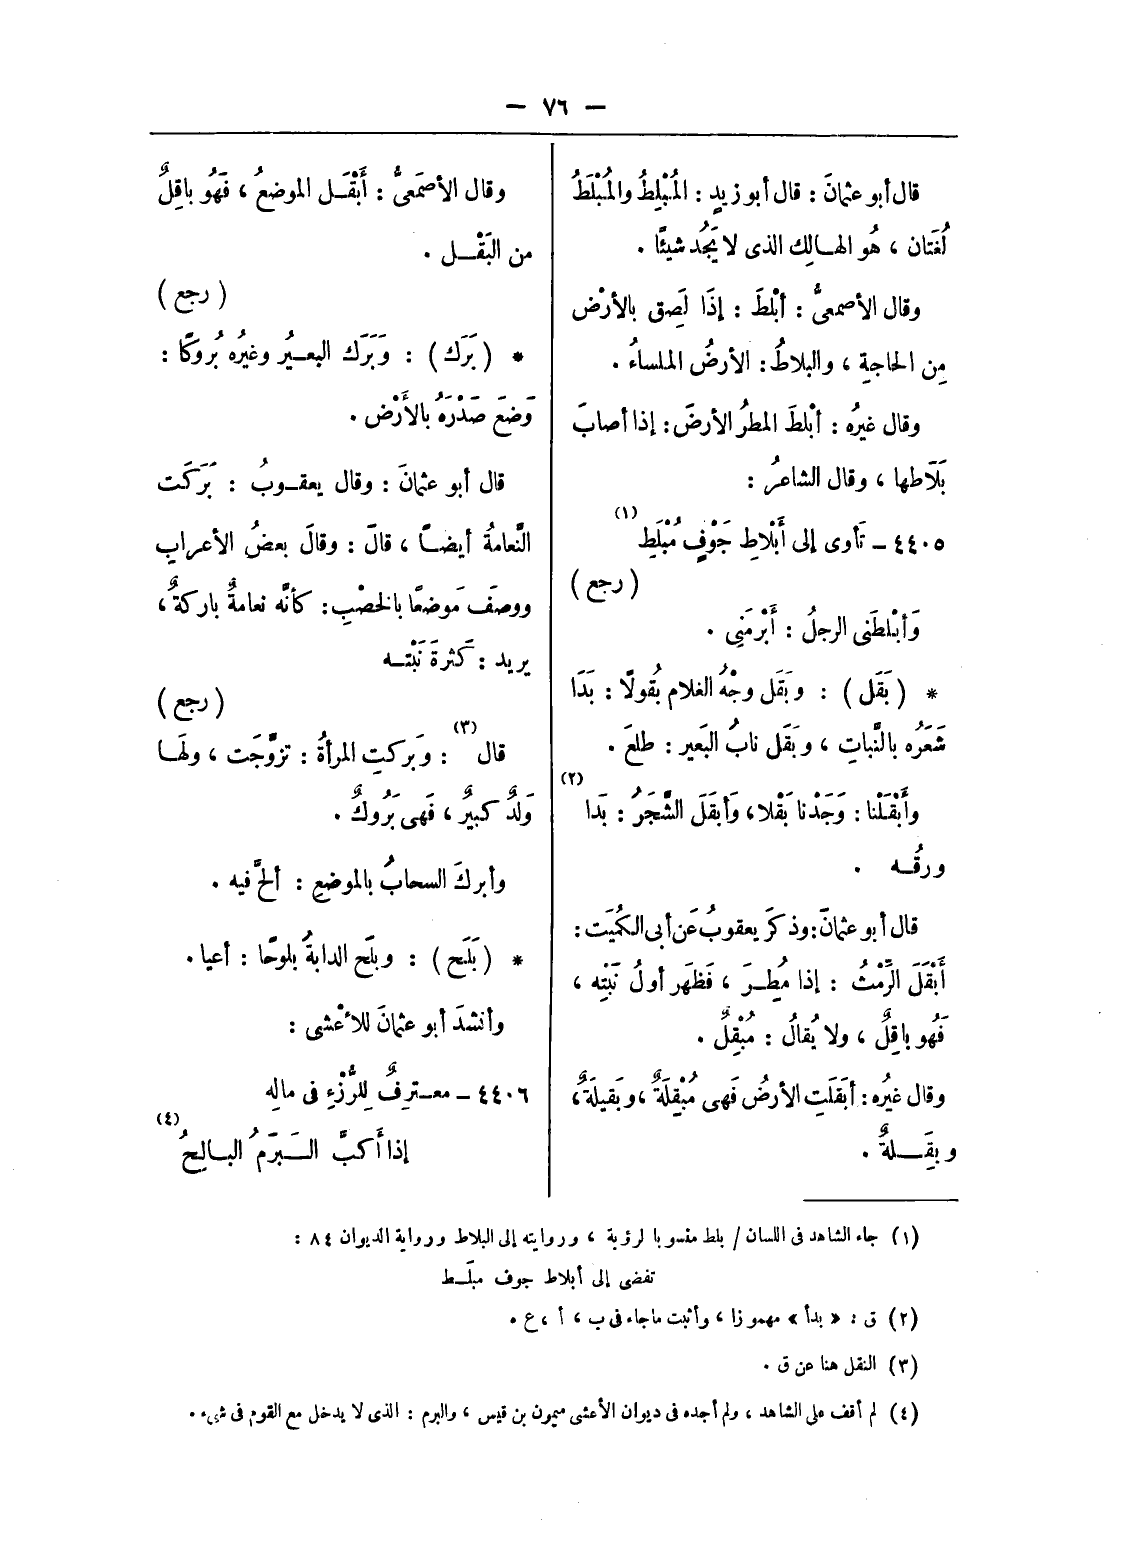 — ٧٦ —
قال أبو عثمانَ : قال أبو زيدٍ : المُبْلِطُ والمُبْلَطُ
لُغَتان ، هُو الهالِك الذى لا يَجُد شيئًا .
وقال الأصمعىُّ : أبْلطَ : إذَا لَصِق بالأرْض
مِن الحاجةِ ، والبلاطُ : الأرضُ الملساءُ .
وقال غيرُه : أبْلطَ المطرُ الأرضَ : إذا أصابَ
بَلَاطها ، وقال الشاعرُ :
٤٤٠٥ ـ تَأوى إلى أَبْلاطِ جَوْفٍ مُبْلَطِ (١)
( رجع )
وَأَبْلطَنى الرجلُ : أَبْرمَنِى .
* ( بَقَل ) : وبَقَل وجْهُ الغلام بُقولًا : بَدَا
شَعَرُه بالنَّباتِ ، وبَقَل نابُ البَعير : طلعَ .
وأَبْقَلْنا : وَجَدْنا بَقْلا ، وَأَبقَلَ الشَّجَرُ : بَدَا (٢)
ورقُه .
قال أبو عثمانَ : وذكرَ يعقوبُ عَن أبى الكُمَيَت :
أَبْقَلَ الرِّمْثُ : إذا مُطِرَ ، فَظهَر أولُ نَبْتِه ،
فَهُو باقِلٌ ، ولا يُقالُ : مُبْقِلٌ .
وقال غيرُه : أبَقَلَتِ الأرضُ فَهى مُبْقِلَةٌ ، وبَقيلَةٌ ،
وبقِلةٌ .
وقال الأصمَعىُّ : أَبْقَل الموضعُ ، فَهُو باقِلٌ
من البَقْل .
( رجع )
* ( بَرَك ) : وَبَرَك البعيرُ وغيرُه بُروكًا :
وَضَعَ صَدْرَهُ بالأَرْض .
قال أبو عثمانَ : وقال يعقوبُ : بَرَكَت
النَّعامةُ أيضًا ، قالَ : وقالَ بعضُ الأعرابِ
ووصفَ مَوضعًا بالخصْبِ : كأنَّه نعامةٌ باركةٌ ،
يريد : كَثرةَ نَبْتِه
( رجع )
قال (٣) : وَبَركتِ المرأةُ : تزوَّجَت ، ولَها
وَلدٌ كبيرٌ ، فَهى بَرُوكٌ .
وأبركَ السحابُ بالموضعِ : ألحَّ فيه .
* ( بَلَح ) : وبلَح الدابةُ بلوحًا : أعيا .
وأنشدَ أبو عثمانَ للأعْشى :
٤٤٠٦ ـ معترفٌ لِلرُّزْءِ فى مالِه
إذا أَكبَّ البَرَمُ البالِحُ (٤)
(١) جاء الشاهد فى اللسان / بلط منسوبا لرؤبة ، وروايته إلى البلاط ورواية الديوان ٨٤ :
تفضى إلى أبلاط جوف مبلَط
(٢) ق : « بدأ » مهموزا ، وأثبت ماجاء فى ب ، أ ، ع .
(٣) النقل هنا عن ق .
(٤) لم أقف على الشاهد ، ولم أجده فى ديوان الأعشى ميمون بن قيس ، والبرم : الذى لا يدخل مع القوم فى شىء .